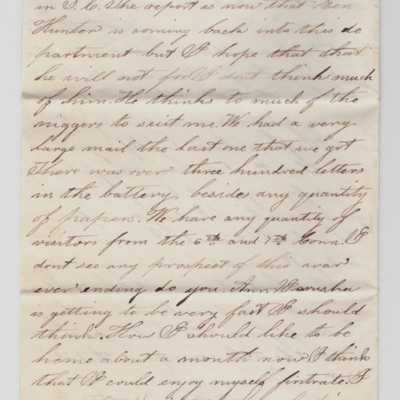 in S.C. The report is now that Gen
Hunter is coming back into this de
partment but I hope that
he will not for I dont think much
of him. He thinks to much of the
niggers to suit me. We had a very
large mail the last one that we got
There was over three hundred letters
in the battery, besides any quantity
of papers. We have any quantity of
visitors from the 6th and 7th Conn. I
dont see any prospect of this war
ever ending do you. Ann
is getting to be very fast I should
think. How I should like to be
home about a month now I think
that I could enjoy myself firstrate. I